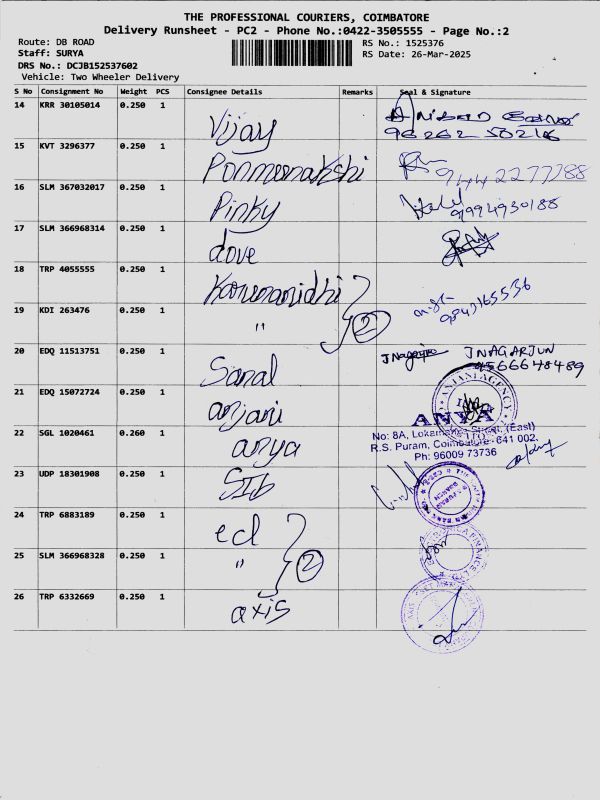 THE PROFESSIONAL COURIERS, COIMBATORE
Delivery Runsheet - PC2 - Phone No.:0422-3505555 - Page No.:2
Route: DB ROAD RS No.: 1525376
Staff: SURYA RS Date: 26-Mar-2025
DRS No.: DCJB152537602
Vehicle: Two Wheeler Delivery
S No Consignment No Weight PCS Consignee Details Remarks Seal & Signature
14 KRR 30105014 0.250 1 Vijay
15 KVT 3296377 0.250 1 Ponmeenakshi 94442277788
16 SLM 367032017 0.250 1 Pinky 9994930188
17 SLM 366968314 0.250 1 dove
18 TRP 4055555 0.250 1 Karunanidhi 9843165536
19 KDI 263476 0.250 1 " 2
20 EDQ 11513751 0.250 1 Sanal J NAGARJUN
9566648489
21 EDQ 15072724 0.250 1 anjani ANJANI AGENCY
22 SGL 1020461 0.260 1 arya
No: 8A, Lokamanya Street, (East)
R.S. Puram, Coimbatore - 641 002.
Ph: 96009 73736
23 UDP 18301908 0.250 1 SIB
24 TRP 6883189 0.250 1 ecl
25 SLM 366968328 0.250 1 " 2
26 TRP 6332669 0.250 1 axis